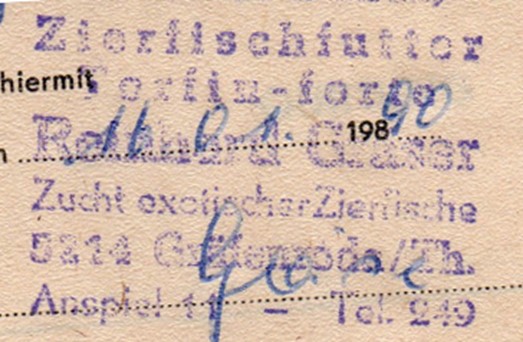 Zierfischfutter
hiermit
Torfin-forte
16. 01. 198 90
Reinhard Gläser
Zucht exotischer Zierfische
5214 Gräfenroda/Th.
Anspiel 11 – Tel. 249